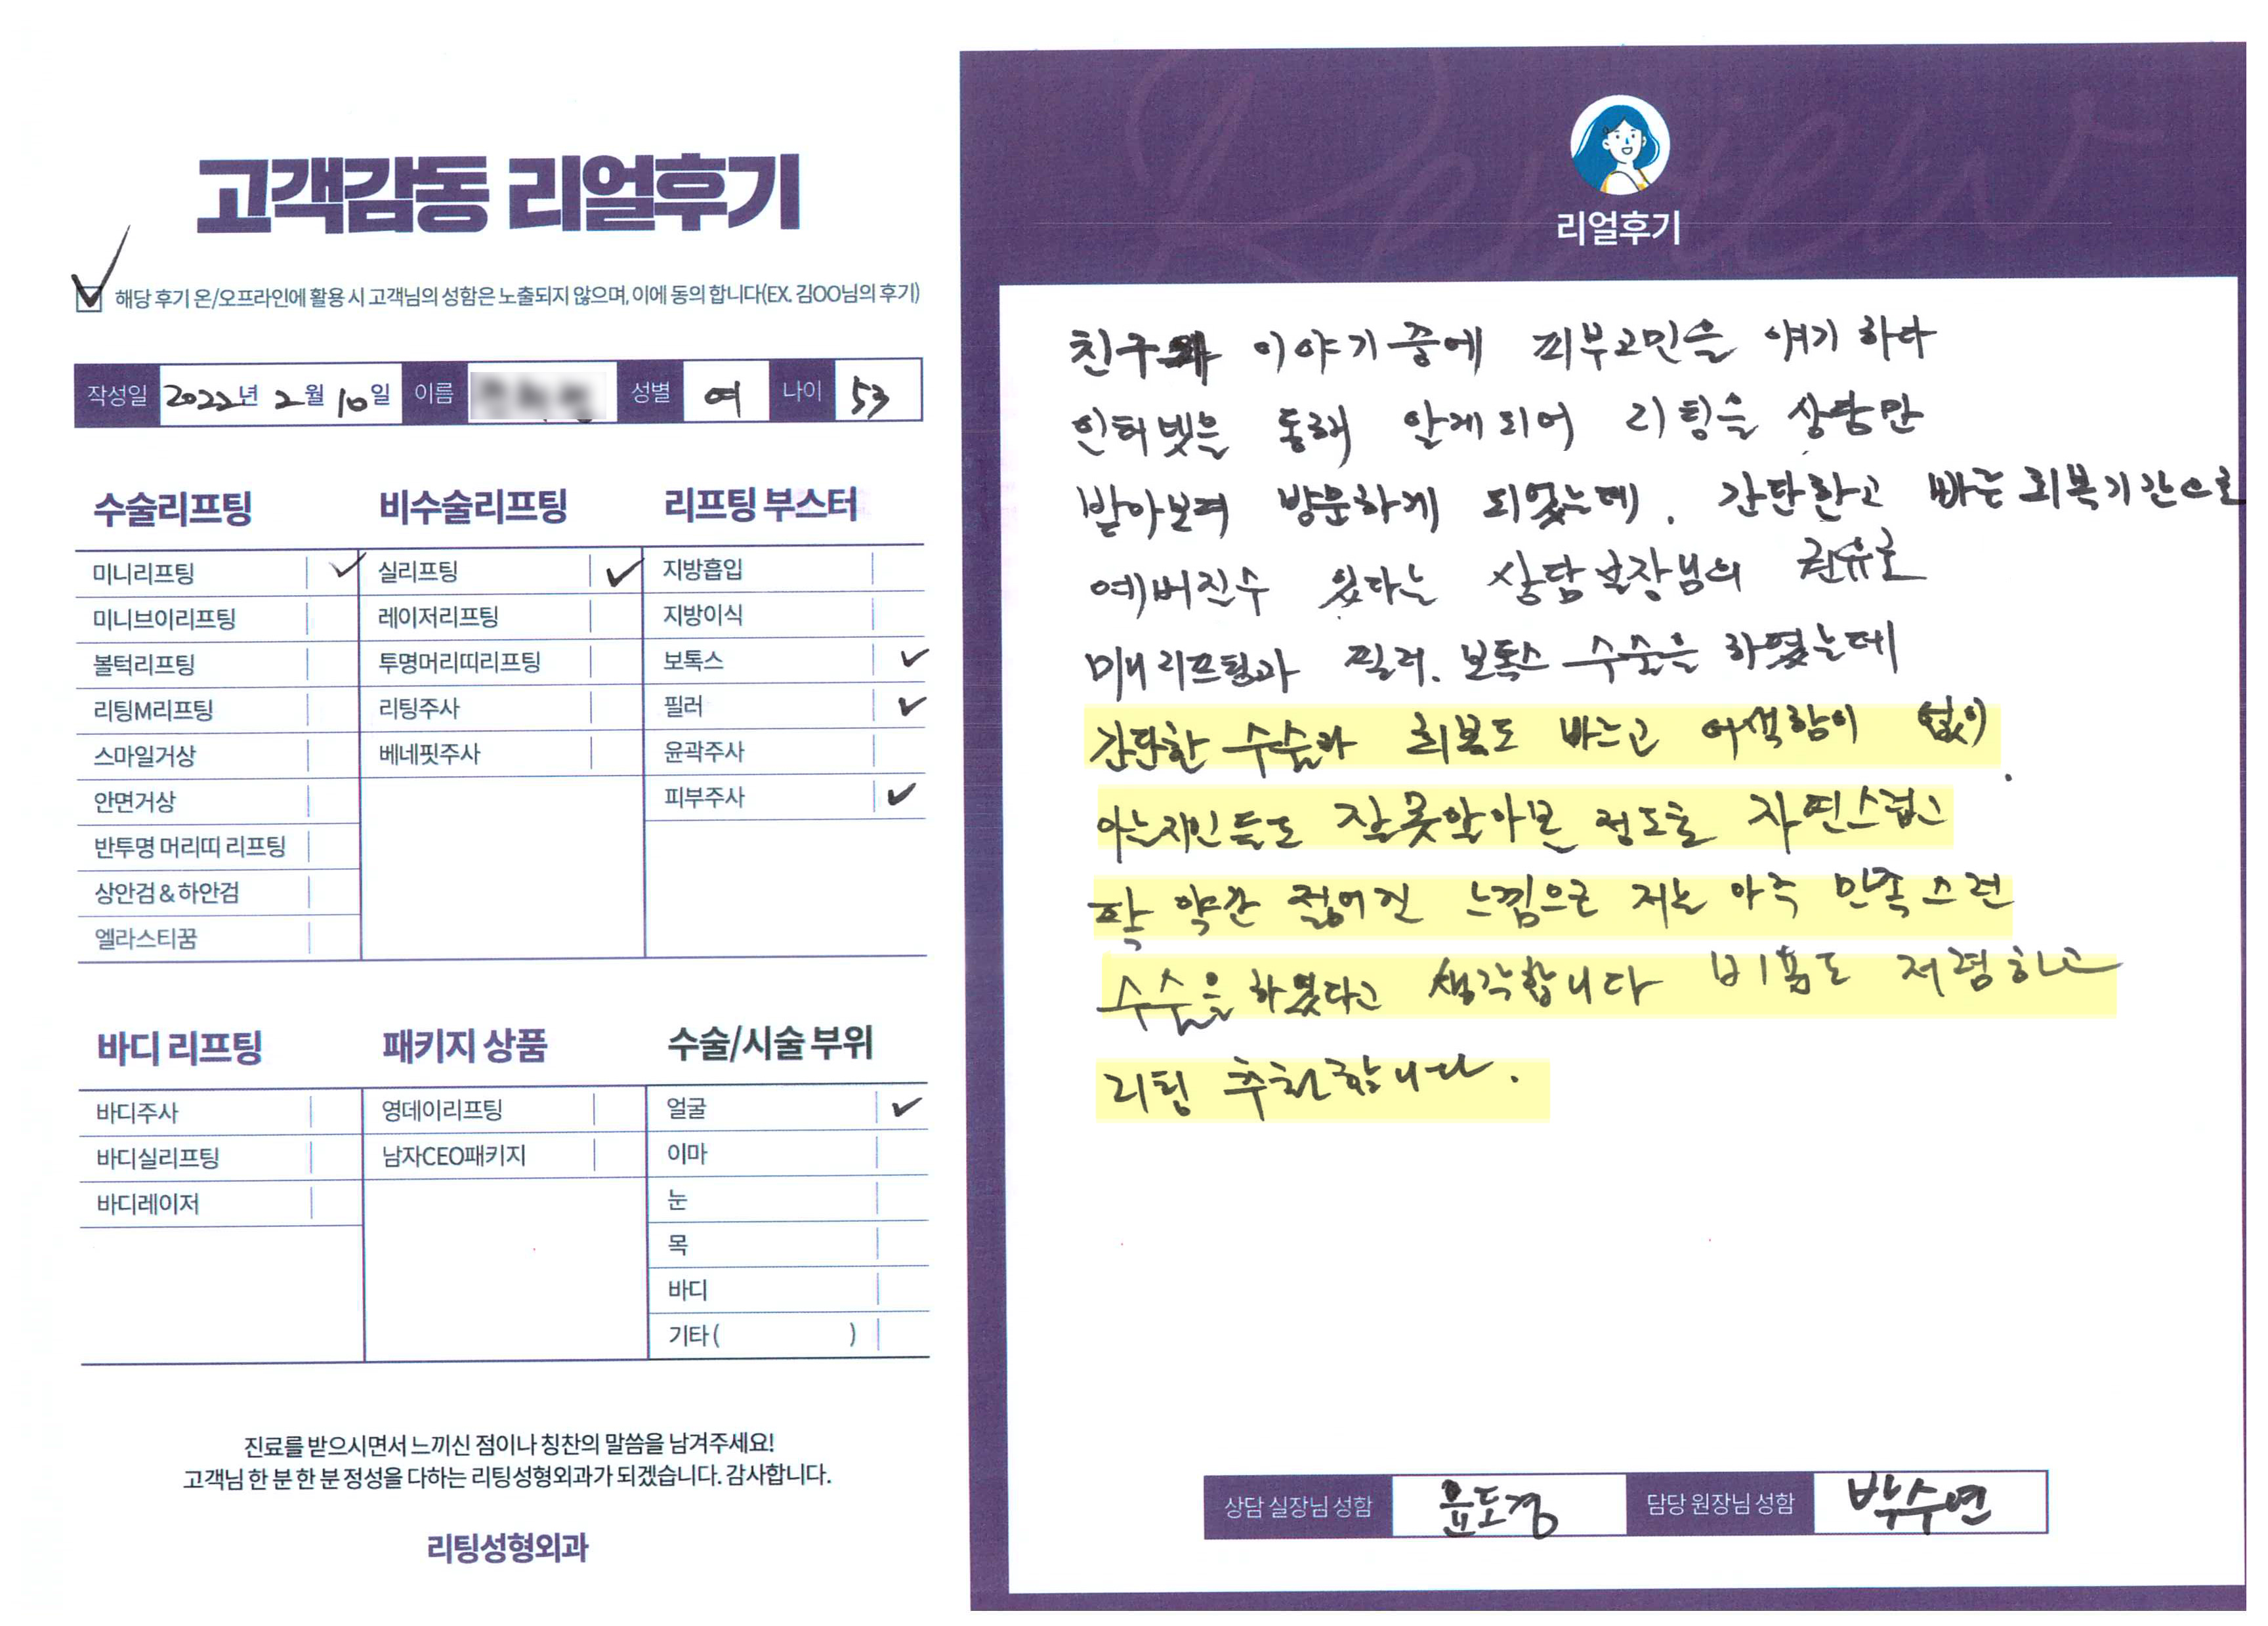 고객감동 리얼후기
해당 후기 온/오프라인에 활용 시 고객님의 성함은 노출되지 않으며, 이에 동의 합니다(EX. 김OO님의 후기)
작성일 2022년 2월 10일 이름 성별 여 나이 53
수술리프팅
미니리프팅
미니브이리프팅
볼턱리프팅
리팅M리프팅
스마일거상
안면거상
반투명 머리띠 리프팅
상안검 & 하안검
엘라스티꿈
비수술리프팅
실리프팅
레이저리프팅
투명머리띠리프팅
리팅주사
베네핏주사
리프팅 부스터
지방흡입
지방이식
보톡스
필러
윤곽주사
피부주사
바디 리프팅
바디주사
바디실리프팅
바디레이저
패키지 상품
영데이리프팅
남자CEO패키지
수술/시술 부위
얼굴
이마
눈
목
바디
기타 ( )
진료를 받으시면서 느끼신 점이나 칭찬의 말씀을 남겨주세요!
고객님 한 분 한 분 정성을 다하는 리팅성형외과가 되겠습니다. 감사합니다.
리팅성형외과
Review
리얼후기
친구와 이야기 중에 피부고민을 얘기 하다
인터넷을 통해 알게되어 리팅을 상담만
받아보려 방문하게 되었는데. 간단한고 빠른 회복기간으로
예뻐진수 있다는 상담실장님의 권유로
미니리프팅과 필러. 보톡스 수술을 하였는데
간단한 수술과 회복도 빠르고 어색함이 없이
아는지인들도 잘못알아본 정도로 자연스럽고
확 약간 젊어진 느낌으로 저는 아주 만족스런
수술을 하였다고 생각합니다 비용도 저렴하고
리팅 추천합니다.
상담 실장님 성함 윤도경 담당 원장님 성함 박수연